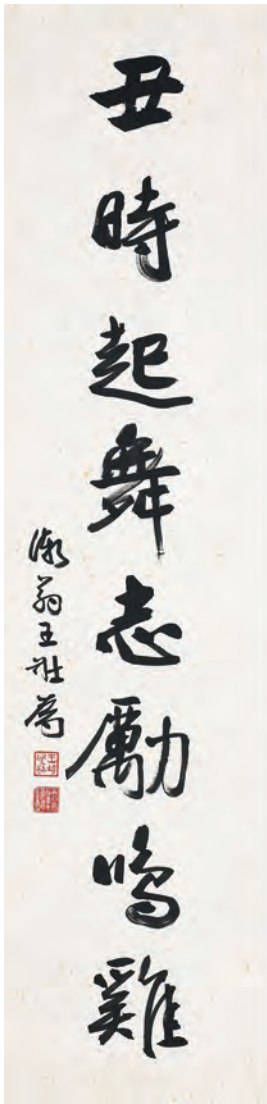 丑時起舞志勵鳴雞
漸翁王壯為